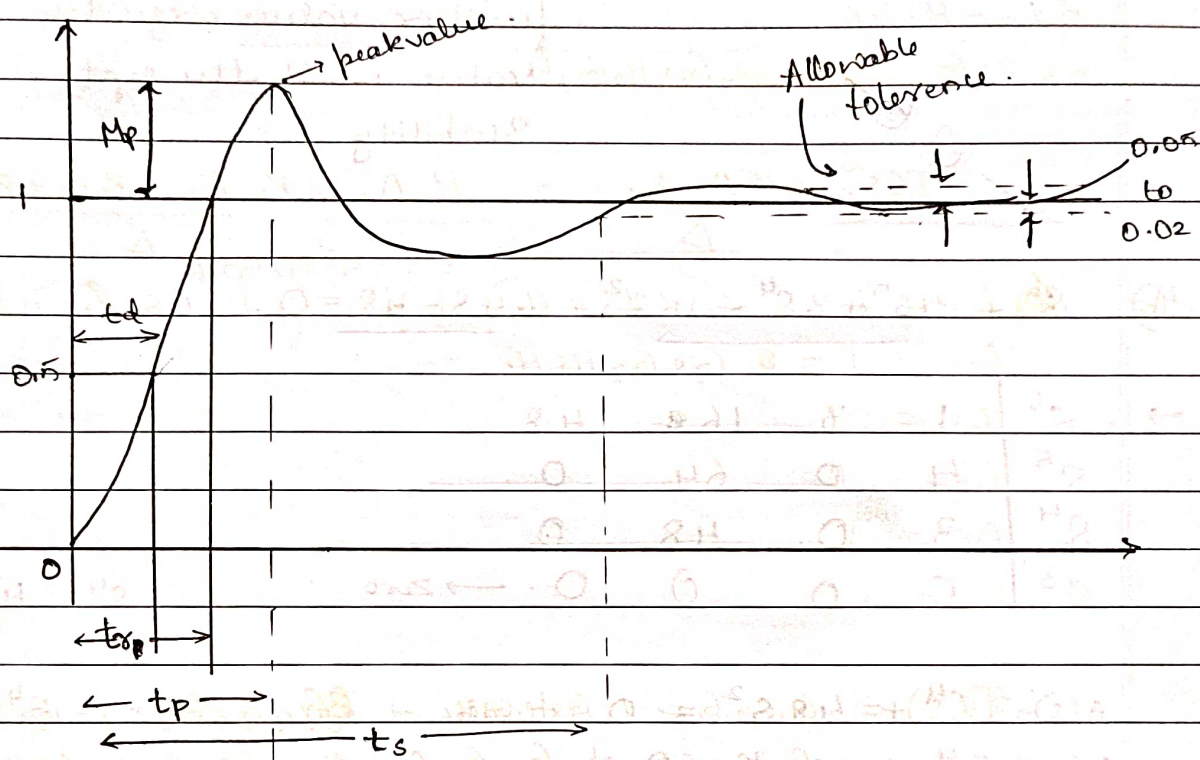 peak value.
Allowable
tolerence.
Mp
0.05
1
to
0.02
td
0.5
0
tr
tp
ts